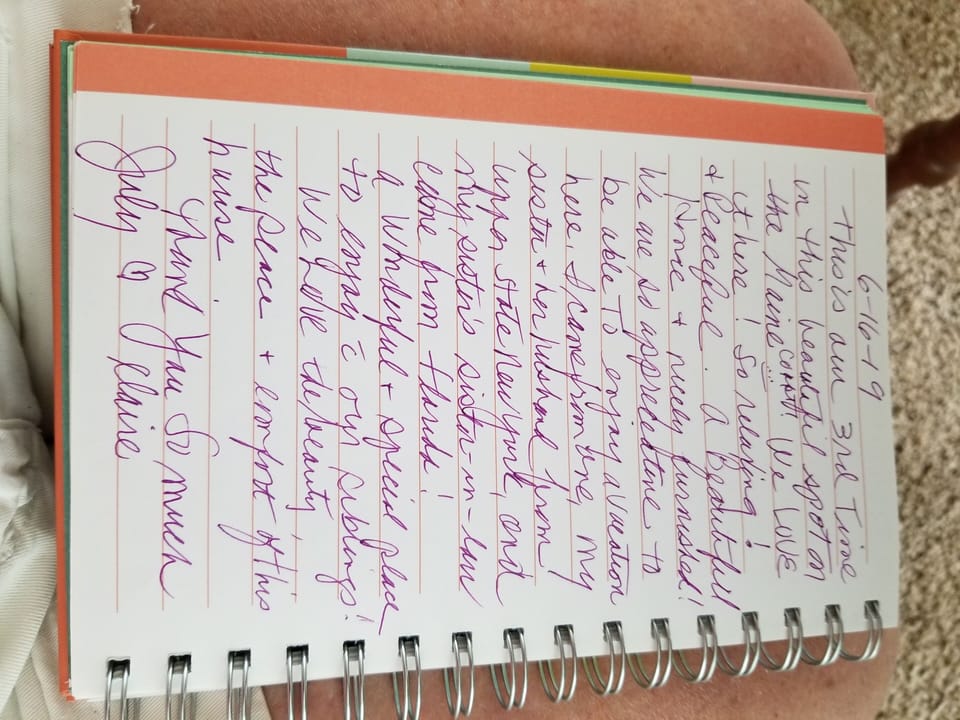 6-16-19
This is our 3rd Time
in this beautiful spot on
the Maine coast! We Love
it here! So relaxing!
& Peaceful. A Beautiful
home & nicely furnished!
We are so appreciative to
be able to enjoy a vacation
here. I came from my
sister & her husband from
upper State New York, and
my sister's sister-in-law
came from Florida!
a Wonderful & special place
to enjoy c̄ our siblings!
We Love the beauty,
the peace & comfort of this
home
Thank You So much
Judy ♡ Claire